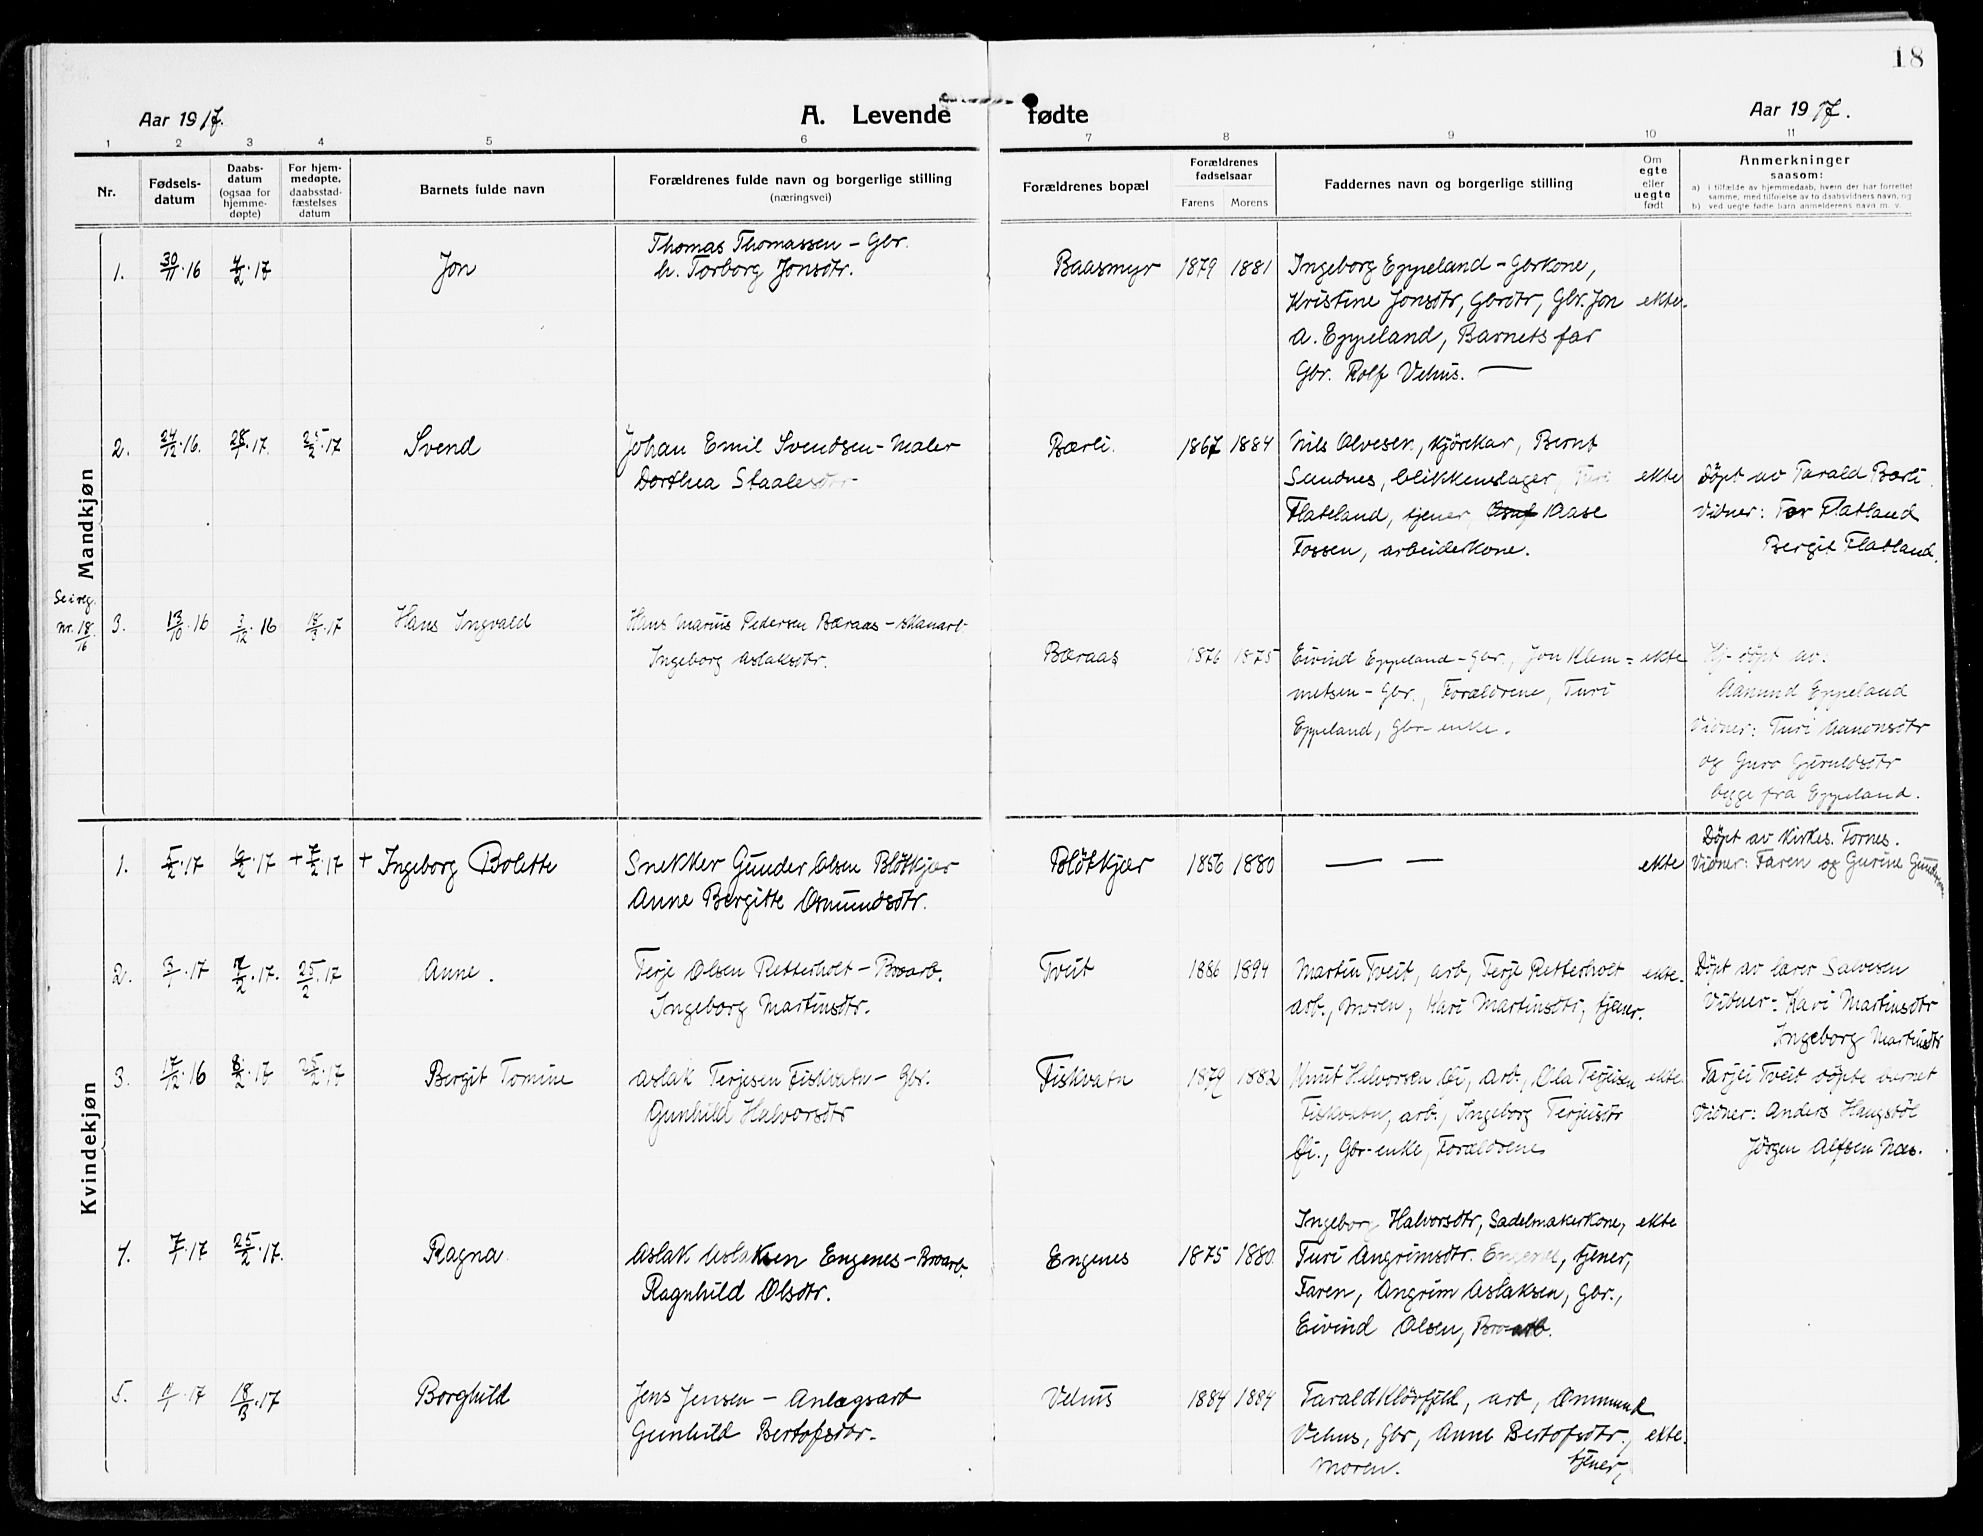 18
Aar 1917. A. Levende fødte Aar 1917.
1 2 3 4 5 6 7 8 9 10 11
Nr. Fødselsdatum Daabsdatum (ogsaa for hjemmedøpte) For hjemmedøpte, daabsstadfæstelses datum Barnets fulde navn Forældrenes fulde navn og borgerlige stilling (næringsvei) Forældrenes bopæl Forældrenes fødselsaar Farens Morens Faddernes navn og borgerlige stilling Om egte eller uegte født Anmerkninger saasom:
a) i tilfælde av hjemmedaab, hvem der har forrettet samme, med tilføielse av to daabsvidners navn, og
b) ved uegte fødte barn anmelderens navn m. v.
Mandkjøn
1. 30/11.16 4/2.17 Jon Thomas Thomassen – Gbr.
h. Torborg Jonsdtr. Baasmyr 1879 1881 Ingeborg Eppeland – Gbrkone,
Kristine Jonsdtr, Gbrdtr, Gbr. Jon ekte.
A. Eppeland, Barnets far
Gbr. Rolf Vehus. —
2. 24/12.16. 28/1.17. 25/2.17 Svend Johan Emil Svendsen – Maler
Dorthea Staalesdtr Bærli. 1867 1884 Nils Olvesen, kjørekar, Bernt
Sundnes, blikkenslager, Turi ekte Døpt av Tarald Bærli.
Flateland, tjener, Aase Vidner: Tor Flatland
Fossen, arbeiderkone. Bergit Flatland.
Se i reg.
nr. 18/16
3. 13/10.16 3/12.16 18/3.17 Hans Ingvald Hans Marius Pedersen Bæraas –
Ingeborg Aslaksdtr. Bæraas 1876 1875 Eivind Eppeland – Gbr., Jon Klem= ekte Hj-døpt av:
metsen – Gbr., Forældrene, Turi Aanund Eppeland
Eppeland, Gbr-enke. Vidner: Turi Aanonsdtr
og Guro Gjeruldsdtr
begge fra Eppeland.
Kvindekjøn
1. 5/2.17 6/2.17 + 7/2.17 + Ingeborg Bolette Snekker Gunder Olsen Bløtkjær
Anne Bergitte Osmundsdtr. Bløtkjær 1856 1880 — — ekte Døpt av kirkes. Fornes.
Vidner: Faren og Gurine Gundersen
2. 3/1.17 7/2.17. 25/2.17 Anne. Terje Olsen Retterholt – Broarb.
Ingeborg Martinsdtr. Tveit 1886 1894 Martin Tveit, arb, Terje Retterholt ekte. Døpt av lærer Salvesen
arb., Moren, Kari Martinsdtr, tjener. Vidner: Kari Martinsdtr
Ingeborg Martinsdtr
3. 17/12.16 8/2.17 25/2.17 Bergit Tomine Aslak Terjesen Fiskvatn – Gbr.
Gunhild Halvorsdtr Fiskvatn 1879 1882 Knut Halvorsen Li, arb., Ola Terjeisen ekte. Tarjei Tveit døpte barnet
Fiskvatn, arb., Ingeborg Terjeisdtr Vidner: Anders Haugstøl
Li., Gbr-enke, Forældrene Jørgen Alfsen Næs.
4. 7/1.17 25/2.17. Ragna Aslak Aslaksen Engenes – Broarb.
Ragnhild Olsdtr. Engenes 1875 1880. Ingeborg Halvorsdtr, Sadelmakerkone, ekte
Turi Angrimsdtr. Engenes, tjener,
Faren, Angrim Aslaksen, Gbr.,
Eivind Olsen, Broarb.
5. 17 18/3.17 Borghild Jens Jensen – Anlægsarb
Gunhild Bertofsdtr. Vehus 1884 1884 Tarald Kløvfjeld, arb, Ommund
Vehus, Gbr, Anne Bertofsdtr., ekte.
Moren. tjener,